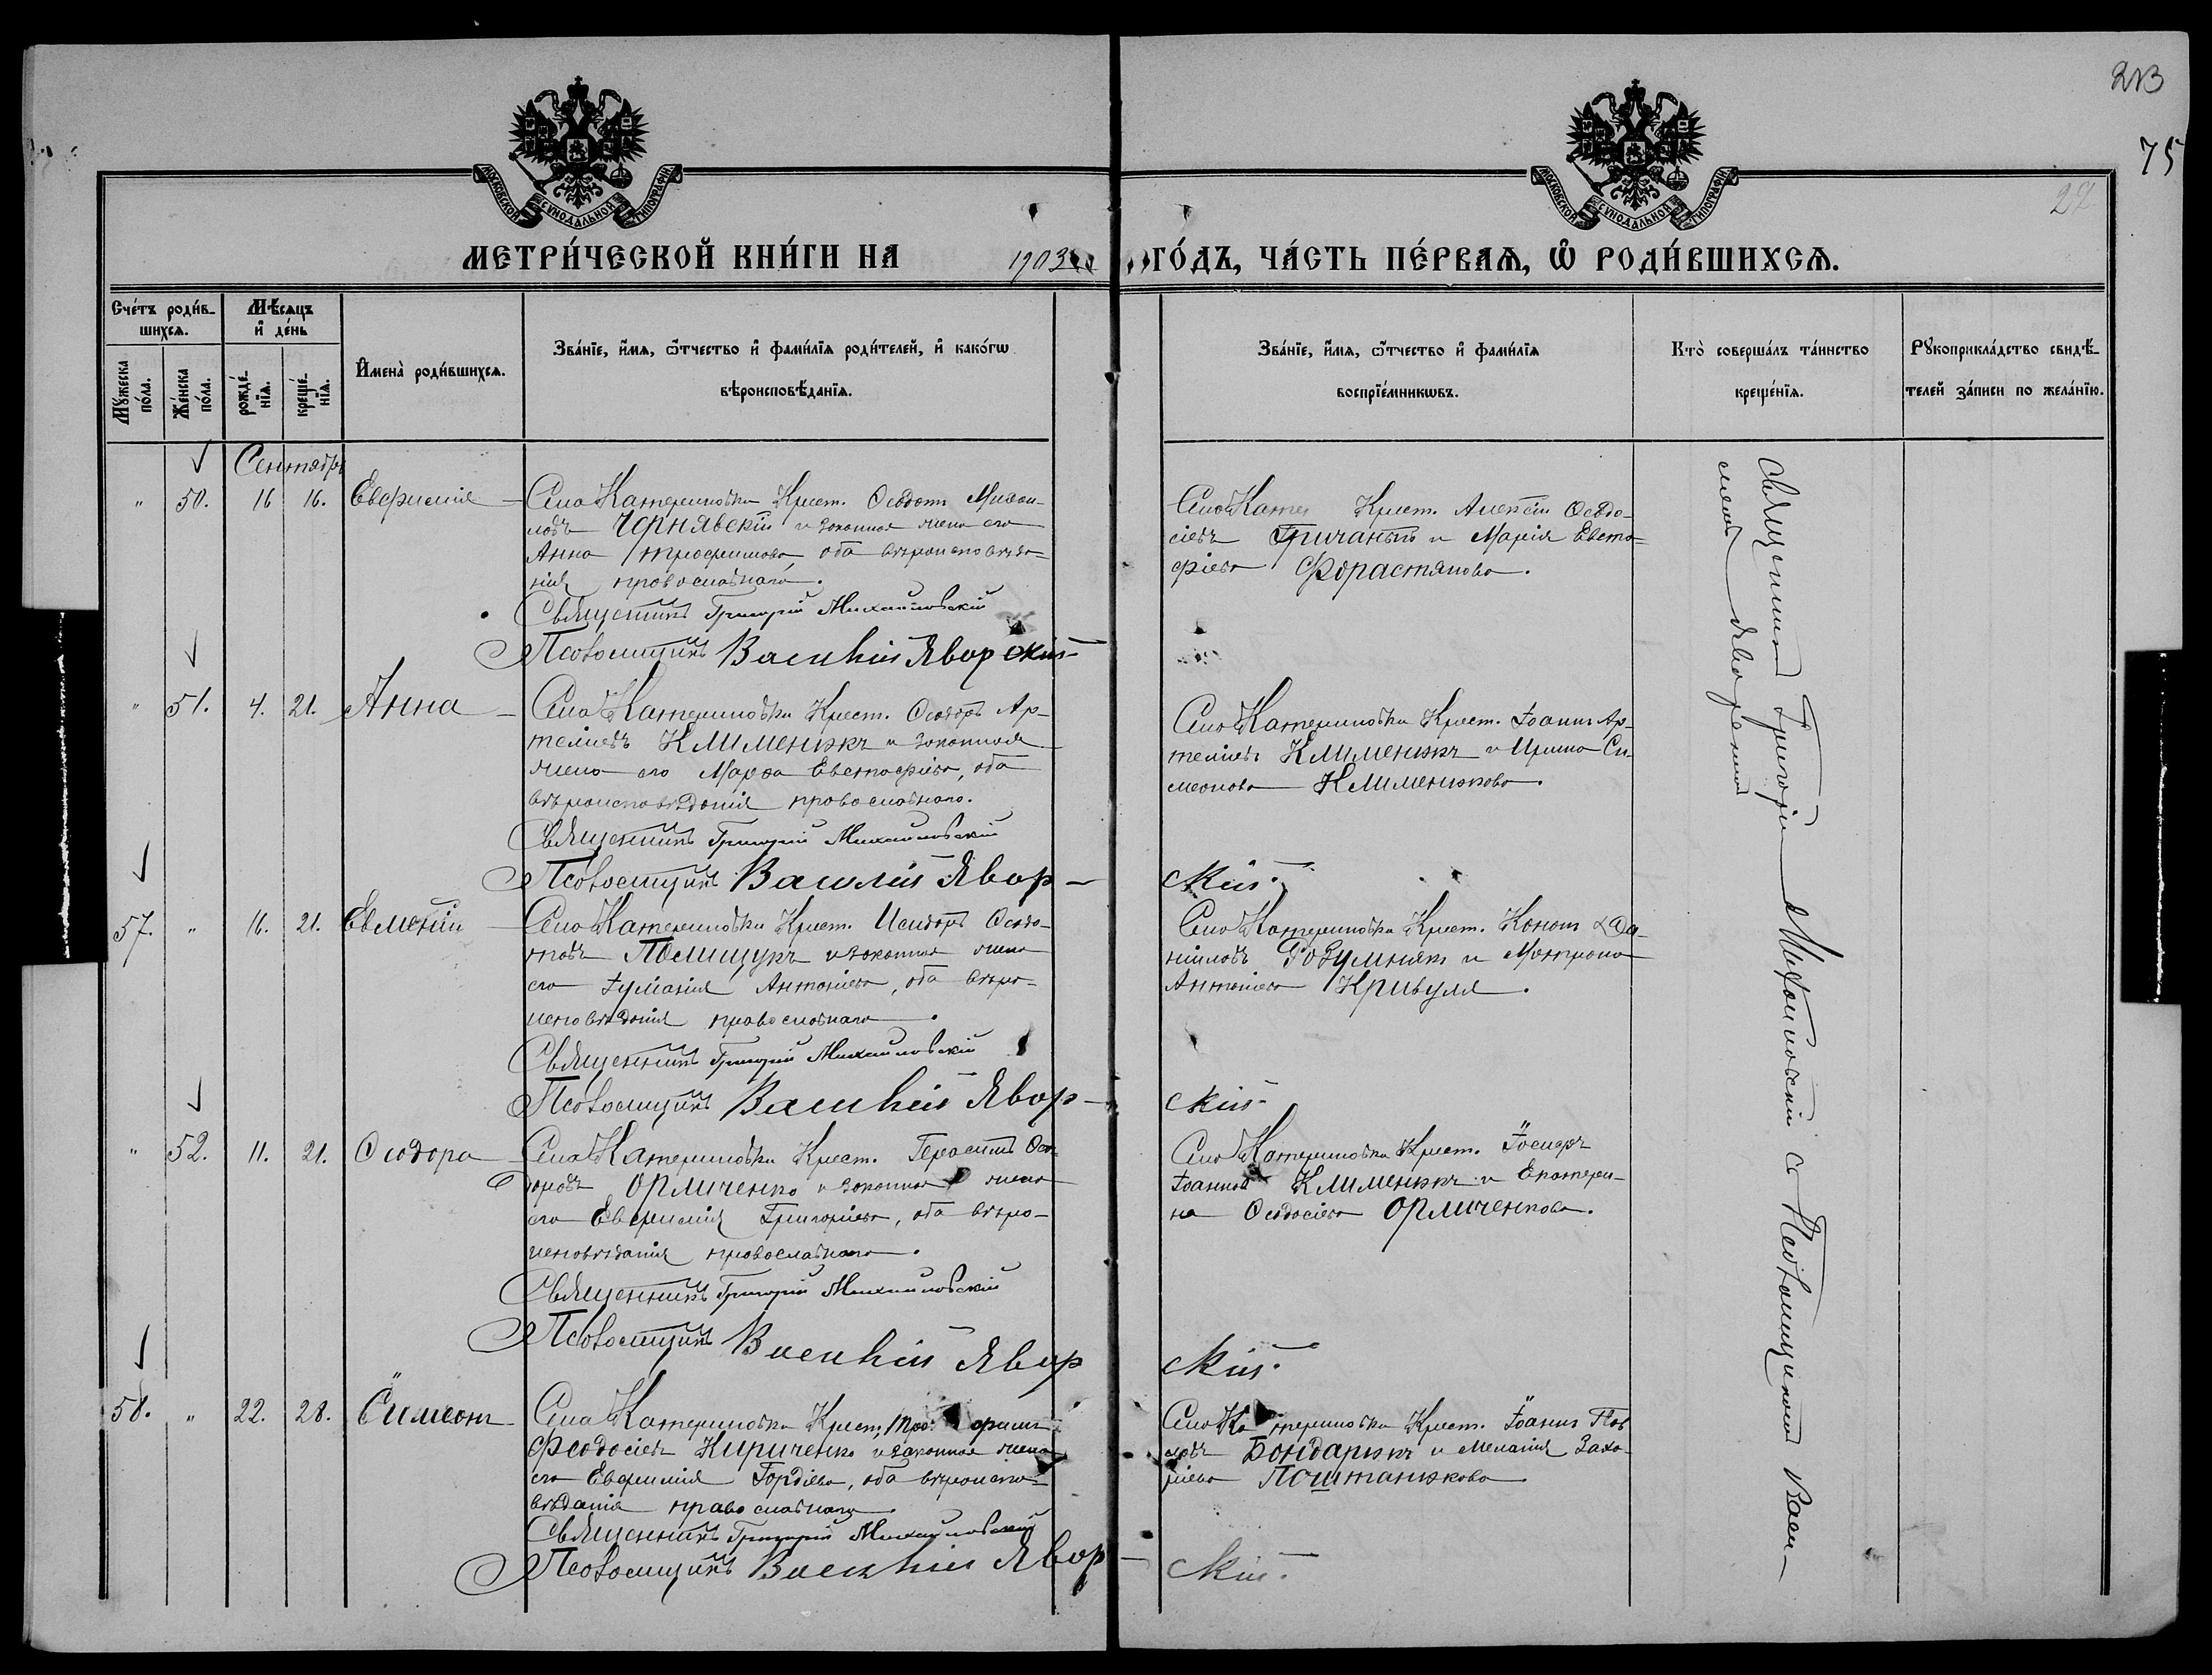 213
75
27
МОСКОВСКОЙ СѴНОДАЛЬНОЙ ТИПОГРАФІИ
МОСКОВСКОЙ СѴНОДАЛЬНОЙ ТИПОГРАФІИ
МЕТРИ́ЧЕСКОЙ КНИ́ГИ НА 1903 ГО́ДЪ, ЧА́СТЬ ПЕ́РВАѦ, Ѽ РОДИ́ВШИХСѦ.
Сче́тъ роди́в-
шихсѧ.
Мꙋ́жеска по́ла.
Же́нска по́ла.
Мѣ́сѧцъ
и҆ де́нь
рожде́-
нїѧ.
креще́-
нїѧ.
И҆мена̀ роди́вшихсѧ.
Зва́нїе, и҆́мѧ, ѻ҆́тчество и҆ фами́лїѧ роди́телей, и҆ како́гѡ
вѣроисповѣ́данїѧ.
Зва́нїе, и҆́мѧ, ѻ҆́тчество и҆ фами́лїѧ
воспрїе́мникѡвъ.
Кто̀ соверша́лъ та́инство
креще́нїѧ.
Рꙋкоприкла́дство свидѣ́-
телей за́писи по жела́нїю.
Сентябрь
" 50. 16 16. Евфимія
Села Катериновки Крест. Ѳеодотъ Михаи-
ловъ Чернявскій и законная жена его
Анна Трофимова, оба вѣроисповѣда-
нія православнаго.
Священникъ Григорій Михаиловскій
Псаломщикъ Василій Яворскій
Села Катер Крест. Алексій Ѳеодо-
сіевъ и Марія Евста-
фіева Форастянова.
" 51. 4. 21. Анна
Села Катериновки Крест. Ѳеодоръ Ар-
теміевъ Клименюкъ и законная
жена его Марѳа Евстафіева, оба
вѣроисповѣданія православнаго.
Священникъ Григорій Михаиловскій
Псаломщикъ Василій Явор-
скій.
Села Катериновки Крест. Іоаннъ Ар-
теміевъ Клименюкъ и Ирина Си-
меонова Клименюкова.
57. " 16. 21. Евменій
Села Катериновки Крест. Исидоръ Ѳеодо-
товъ Полищукъ и законная жена
его Іуліанія Антоніева, оба вѣро-
исповѣданія православнаго.
Священникъ Григорій Михаиловскій
Псаломщикъ Василій Явор-
скій
Села Катериновки Крест. Кононъ Да-
ніиловъ Розумнякъ и Матрона
Антоніева Кривуля.
" 52. 11. 21. Ѳеодора
Села Катериновки Крест. Герасимъ Ѳео-
доровъ Орличенко и законная жена
его Евфимія Григоріева, оба вѣро-
исповѣданія православнаго.
Священникъ Григорій Михаиловскій
Псаломщикъ Василій Явор
скій.
Села Катериновки Крест. Іосифъ
Іоанновъ Клименюкъ и Екатери-
на Ѳеодосіева Орличенкова.
58. " 22. 28. Симеонъ
Села Катериновки Крест. Тро фимъ
Феодосіевъ Кириченко и законная жена
его Евфимія Гордіева, оба вѣроиспо-
вѣданія православнаго
Священникъ Григорій Михаиловскій
Псаломщикъ Василій Явор-
скій.
Села Ка териновки Крест. Іоаннъ Пав
ловъ Бондарюкъ и Меланія Заха-
ріева Поштанюкова
Священникъ Григорій Михаиловскій съ Псаломщикомъ Васи-
ліемъ Яворскимъ